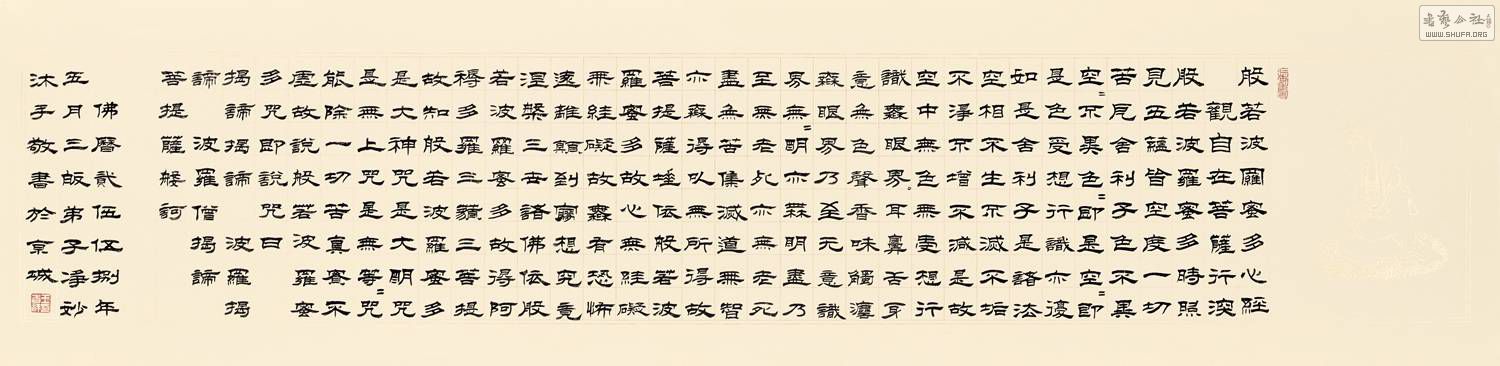 般若波羅蜜多心經
觀自在菩薩行深
般若波羅蜜多時照
見五蘊皆空度一切
苦厄舍利子色不異
空〻不異色〻即是空〻即
是色受想行識亦復
如是舍利子是諸法
空相不生不滅不垢
不淨不增不減是故
空中無色無受想行
識無眼界耳鼻舌身
意無色聲香味觸法
無眼界乃至无意識
界無〻明亦無明盡乃
至無老死亦無老死
盡無苦集滅道無智
亦無得以無所得故
菩提薩埵依般若波
羅蜜多故心無絓礙
無絓礙故無有恐怖
遠離顛倒夢想究竟
涅槃三世諸佛依般
若波羅蜜多故得阿
耨多羅三藐三菩提
故知般若波羅蜜多
是大神咒是大明咒
是無上咒是無等〻咒
能除一切苦真實不
虛故說般若波羅蜜
多咒即說咒曰
揭諦揭諦 波羅揭
諦 波羅僧揭諦
菩提薩婆訶
佛曆貳伍伍捌年
五月三皈弟子淨妙
沐手敬書於京城
书艺公社
WWW.SHUFA.ORG